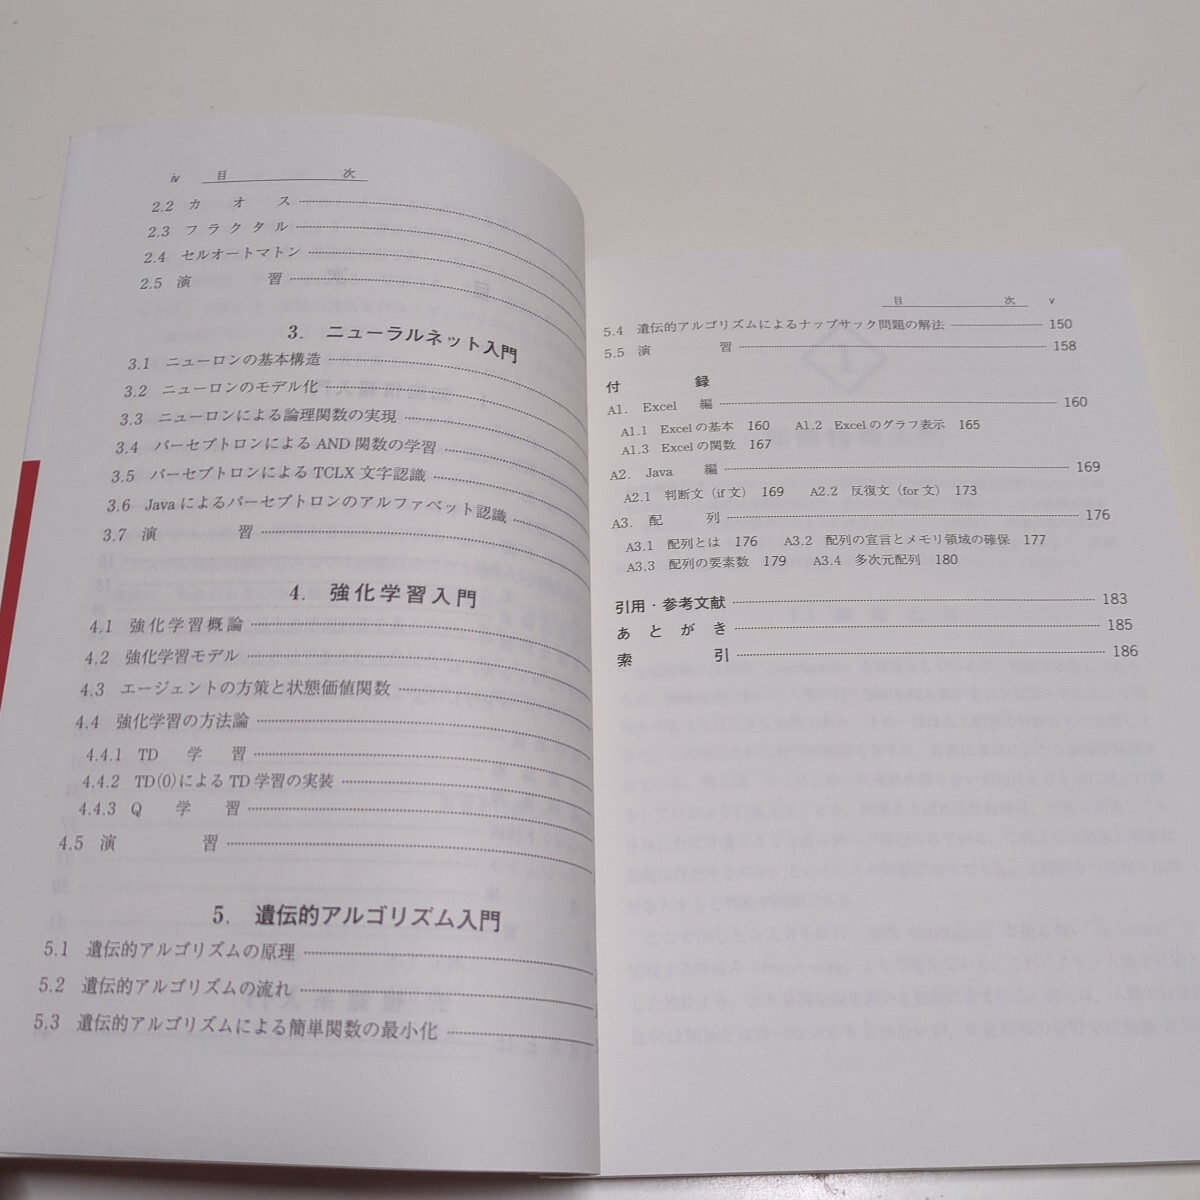 iv 目 次
2.2 カオス
2.3 フラクタル
2.4 セルオートマトン
2.5 演習
3. ニューラルネット入門
3.1 ニューロンの基本構造
3.2 ニューロンのモデル化
3.3 ニューロンによる論理関数の実現
3.4 パーセプトロンによる AND 関数の学習
3.5 パーセプトロンによる TCLX 文字認識
3.6 Javaによるパーセプトロンのアルファベット認識
3.7 演習
4. 強化学習入門
4.1 強化学習概論
4.2 強化学習モデル
4.3 エージェントの方策と状態価値関数
4.4 強化学習の方法論
4.4.1 TD 学習
4.4.2 TD(0)による TD 学習の実装
4.4.3 Q 学習
4.5 演習
5. 遺伝的アルゴリズム入門
5.1 遺伝的アルゴリズムの原理
5.2 遺伝的アルゴリズムの流れ
5.3 遺伝的アルゴリズムによる簡単関数の最小化
目 次 v
5.4 遺伝的アルゴリズムによるナップサック問題の解法 150
5.5 演習 158
付録
A1. Excel 編 160
A1.1 Excelの基本 160 A1.2 Excelのグラフ表示 165
A1.3 Excelの関数 167
A2. Java 編 169
A2.1 判断文 (if文) 169 A2.2 反復文 (for文) 173
A3. 配列 176
A3.1 配列とは 176 A3.2 配列の宣言とメモリ領域の確保 177
A3.3 配列の要素数 179 A3.4 多次元配列 180
引用・参考文献 183
あとがき 185
索引 186